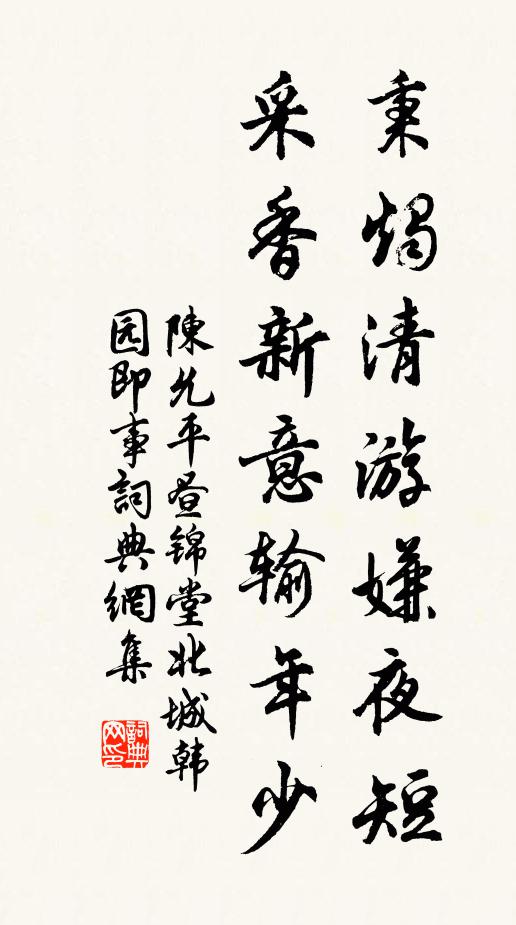 秉燭清游嫌夜短
采香新意輸年少
陳允平昼錦堂北城韩
园即事詞典網集
詞典网印